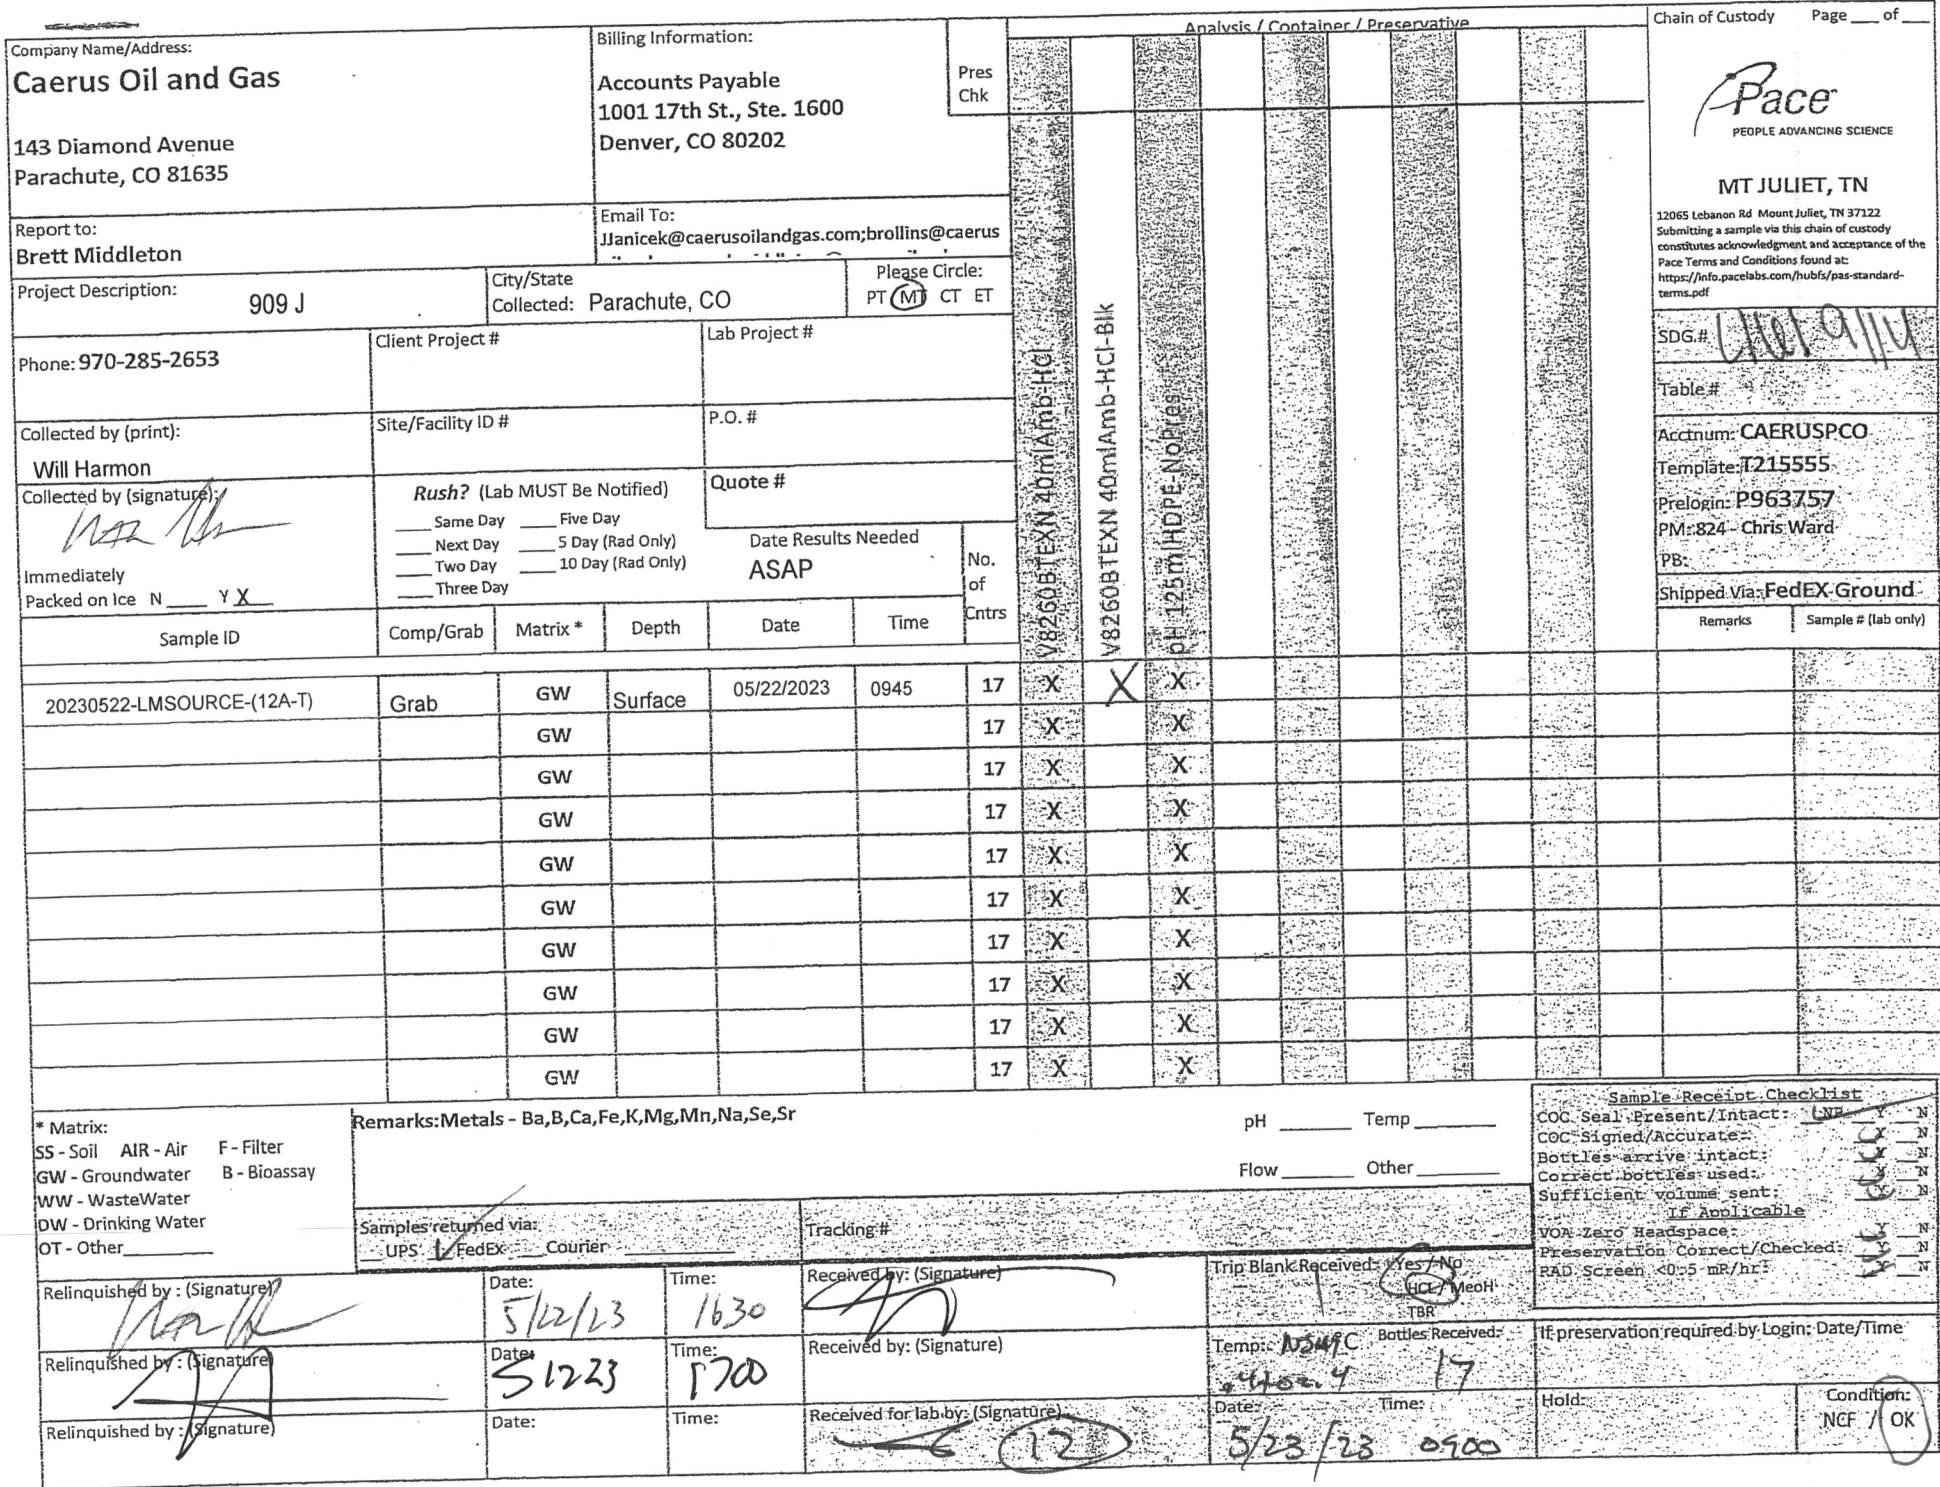 Company Name/Address:
Caerus Oil and Gas
143 Diamond Avenue
Parachute, CO 81635
Billing Information:
Accounts Payable
1001 17th St., Ste. 1600
Denver, CO 80202
Pres
Chk
Analysis / Container / Preservative
Chain of Custody Page ___ of ___
Pace
PEOPLE ADVANCING SCIENCE
MT JULIET, TN
12065 Lebanon Rd Mount Juliet, TN 37122
Submitting a sample via this chain of custody
constitutes acknowledgment and acceptance of the
Pace Terms and Conditions found at:
https://info.pacelabs.com/hubfs/pas-standard-
terms.pdf
Report to:
Brett Middleton
Email To:
JJanicek@caerusoilandgas.com;brollins@caerus
Project Description: 909 J
City/State
Collected: Parachute, CO
Please Circle:
PT MT CT ET
Phone: 970-285-2653
Client Project #
Lab Project #
Collected by (print):
Will Harmon
Site/Facility ID #
P.O. #
Collected by (signature):
Rush? (Lab MUST Be Notified)
___ Same Day ___ Five Day
___ Next Day ___ 5 Day (Rad Only)
___ Two Day ___ 10 Day (Rad Only)
___ Three Day
Quote #
Date Results Needed
ASAP
No.
of
Cntrs
Immediately
Packed on Ice N ___ Y X
V8260BTEXN 40mlAmb-HCl
V8260BTEXN 40mlAmb-HCl-Blk
pH 125mlHDPE-NoPres
SDG #
Table #
Acctnum: CAERUSPCO
Template: T215555
Prelogin: P963757
PM: 824 - Chris Ward
PB:
Shipped Via: FedEX Ground
Sample ID Comp/Grab Matrix * Depth Date Time Remarks Sample # (lab only)
20230522-LMSOURCE-(12A-T) Grab GW Surface 05/22/2023 0945 17 X X X
GW 17 X X
GW 17 X X
GW 17 X X
GW 17 X X
GW 17 X X
GW 17 X X
GW 17 X X
GW 17 X X
GW 17 X X
* Matrix:
SS - Soil AIR - Air F - Filter
GW - Groundwater B - Bioassay
WW - WasteWater
DW - Drinking Water
OT - Other
Remarks:Metals - Ba,B,Ca,Fe,K,Mg,Mn,Na,Se,Sr
pH ___ Temp ___
Flow ___ Other ___
Samples returned via:
___ UPS ___ FedEx ___ Courier
Tracking #
Sample Receipt Checklist
COC Seal Present/Intact: NP Y N
COC Signed/Accurate: Y N
Bottles arrive intact: Y N
Correct bottles used: Y N
Sufficient volume sent: Y N
If Applicable
VOA Zero Headspace: Y N
Preservation Correct/Checked: Y N
RAD Screen <0.5 mR/hr: Y N
Relinquished by : (Signature)
Date: 5/22/23
Time: 1630
Received by: (Signature)
Trip Blank Received: Yes / No
HCL / MeoH
TBR
Relinquished by : (Signature)
Date:
Time: 1700
Received by: (Signature)
Temp: °C
Bottles Received: 17
If preservation required by Login: Date/Time
Relinquished by : (Signature)
Date:
Time:
Received for lab by: (Signature)
12
Date: 5/23/23
Time: 0900
Hold:
Condition:
NCF / OK